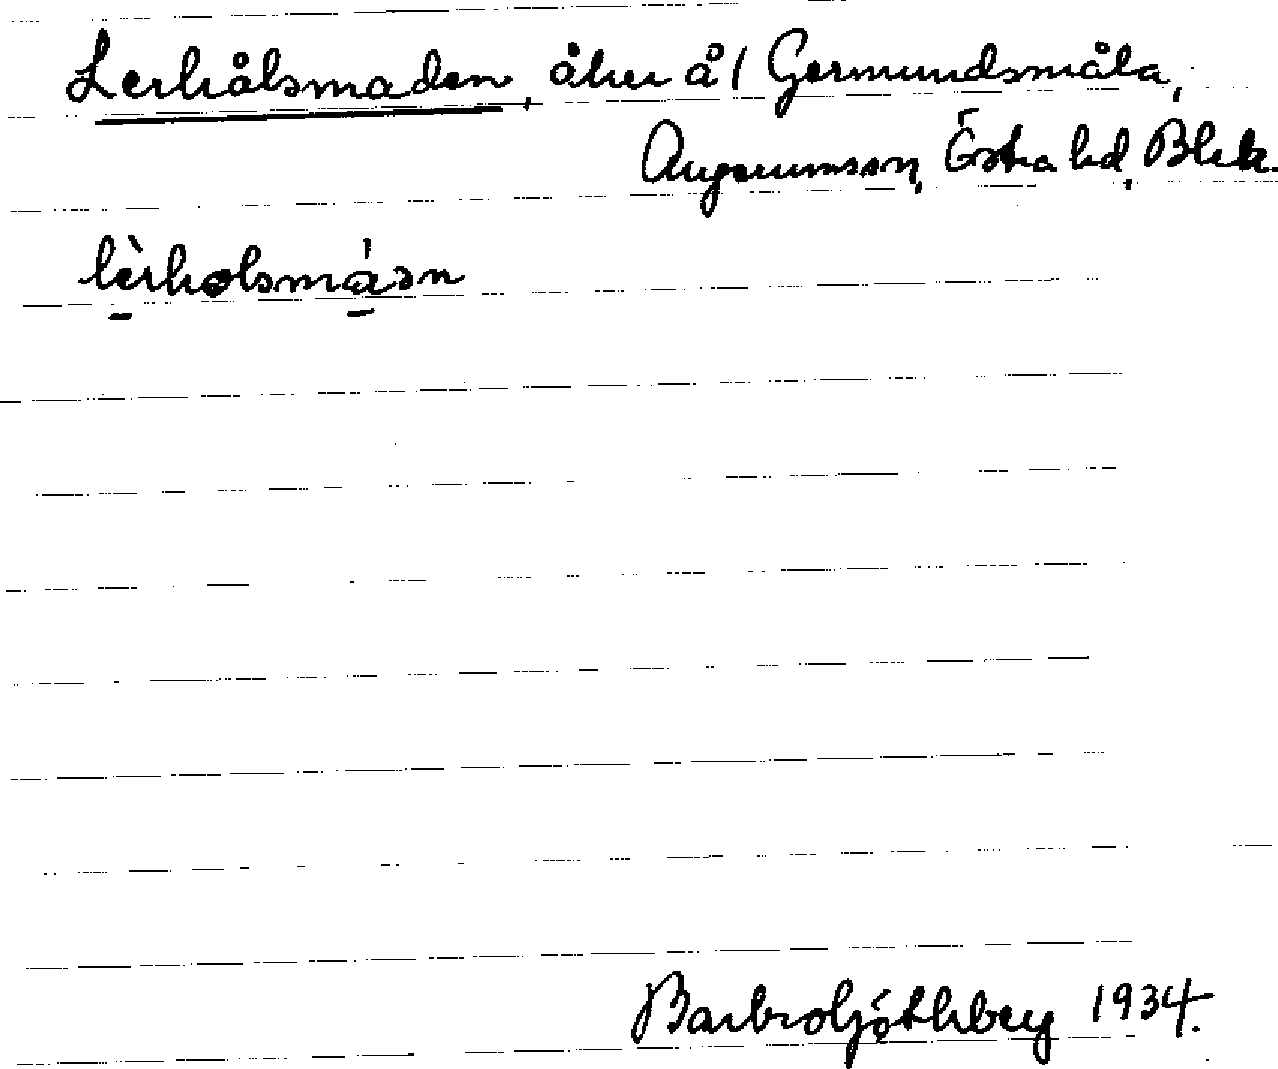 Lerhålsmaden, åker å 1 Germundsmåla,
Augerumssn, Östra hd, Blek.
lèrholsmáən
Barbro Göthberg 1934.